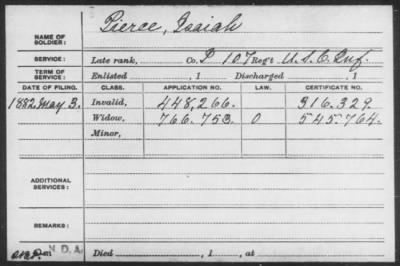 Pierce, Isaiah
NAME OF SOLDIER:
SERVICE: Late rank, Co. D 107 Reg't U.S.C. Inf.
TERM OF SERVICE: Enlisted , 1 Discharged , 1
DATE OF FILING. CLASS. APPLICATION NO. LAW. CERTIFICATE NO.
1882, May 3. Invalid, 448,266. 316.329.
Widow, 766.753. O 545.764.
Minor,
ADDITIONAL SERVICES:
REMARKS:
N D.A.
Died , 1 , at